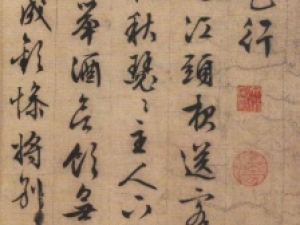 行
江頭夜送客
秋瑟〻主人下
舉酒欲飲無
成歡慘將別